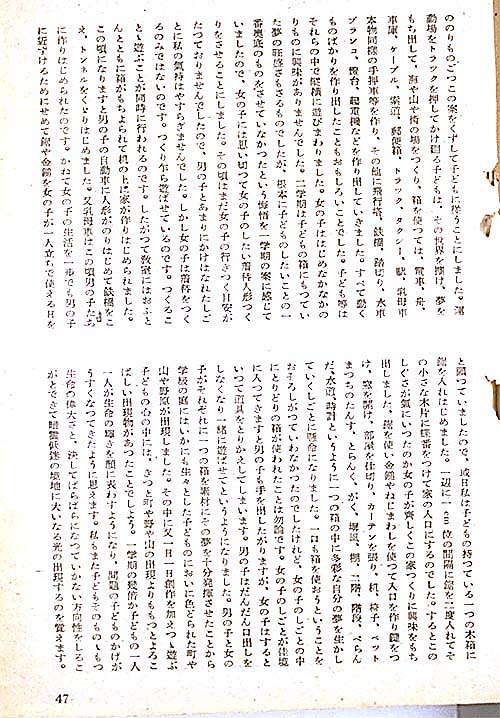 ののりもごつこの案をくずして子どもに從うことにしました。運
動場をトラックを押してかけ廻る子どもは、その世界を擴げ、夢を
もち出して、海や山や街の場をつくり、箱を使つては、電車、舟、
車庫、ケーブル、索道、郵便箱、トラック、タクシー、驛、乳母車
本物同樣の手押車等を作り、その他に飛行塔、鉄橋、踏切り、水車
ブランコ、燈台、起重機などを作り出していきました。すべて動く
ものばかりを作り出したこともおもしろいことでした。子ども等は
それらの中で縱橫に遊びまわりました。女の子ははじめなかなかの
りものに興味がありませんでした。二学期は子どもの箱にもつてい
た夢の旺盛さもさるものでしたが、根本に子どものしたいことの一
番奧底のものをさせていなかつたという悔悟を一学期の案に感じて
いましたので、女の子には思い切つて女の子のしたい着替人形つく
りをさせることにしました。その頃はまだ女の子の行きつく目安が
たつておりませんでしたので、男の子とあまりにかけはなれたしご
とに私の氣持はやすらぎませんでした。しかし女の子は着替をつく
るのみではないのです。つくり乍ら遊ばせているのです。つくるこ
とゝ遊ぶことが同時に行われるのです。したがつて教室にはおふと
んとともに箱がもちよられて机の上に家が作りはじめられました。
この頃になりますと男の子の自動車に人形がのりはじめて鉄橋をこ
え、トンネルをくぐりはじめました。又乳母車はこの頃男の子たち
に作りはじめられたのです。かねて女の子の生活を一歩でも男の子
に近ずけるためにせめて鋸や金鎚を女の子が一人立ちで使える日を
と願つていましたので、或日私は子どもの持つている一つの木箱に
鋸を入れはじめました。一辺に一〇㎝位の間隔に鋸を二度入れてそ
の小さな木片に蝶番をつけて家の入口にするのでした。するとこの
しぐさが氣にいつたのか女の子が齊しくこの家つくりに興味をもち
出しました。鋸を使い金鎚やねじまわしを使つて入口を作り鍵をつ
け、窓を開け、部屋を仕切り、カーテンを張り、机、椅子、ベット
まつちのたんす、とらんく、がく、電氣、棚、二階、階段、べらん
だ、水道、時計というように一つの箱の中に多彩な自分の夢を生かし
ていくしごとに懸命になりました。一口も箱を使おうということを
おそろしがつていわなかつたのでしたけれど、女の子のしごとの中
にとりどりの箱が使われたことは勿論です。女の子のしごとが佳境
に入つてきますと男の子も手を出したがりますが、女の子はすると
いつて道具をとりかえしてしまいます。男の子はだんだん口出しを
しなくなり一緒に遊ばせてというようになりました。男の子と女の
子がそれぞれに一つの箱を素材にその夢を十分発揮させたことから
学校の庭にはいかにも生々とした子どものにおいに色どられた町や
山や野原が出現しました。その中に又一日一日創作を加えつゝ遊ぶ
子どもの心の中には、きつと町や野や山の出現よりももつとよろこ
ばしい出現物があつたことでしよう。一学期の幾倍か子どもの一人
一人が生命の輝きを顔に表わすようになり、問題の子どものかげが
うすくなつてきたように思えます。私もまた子どもそのものゝもつ
生命の偉大さと、決してばらばらになつていかない方向性をしるこ
とができて暗雲低迷の境地に大いなる光の出現するのを覚えます。
47